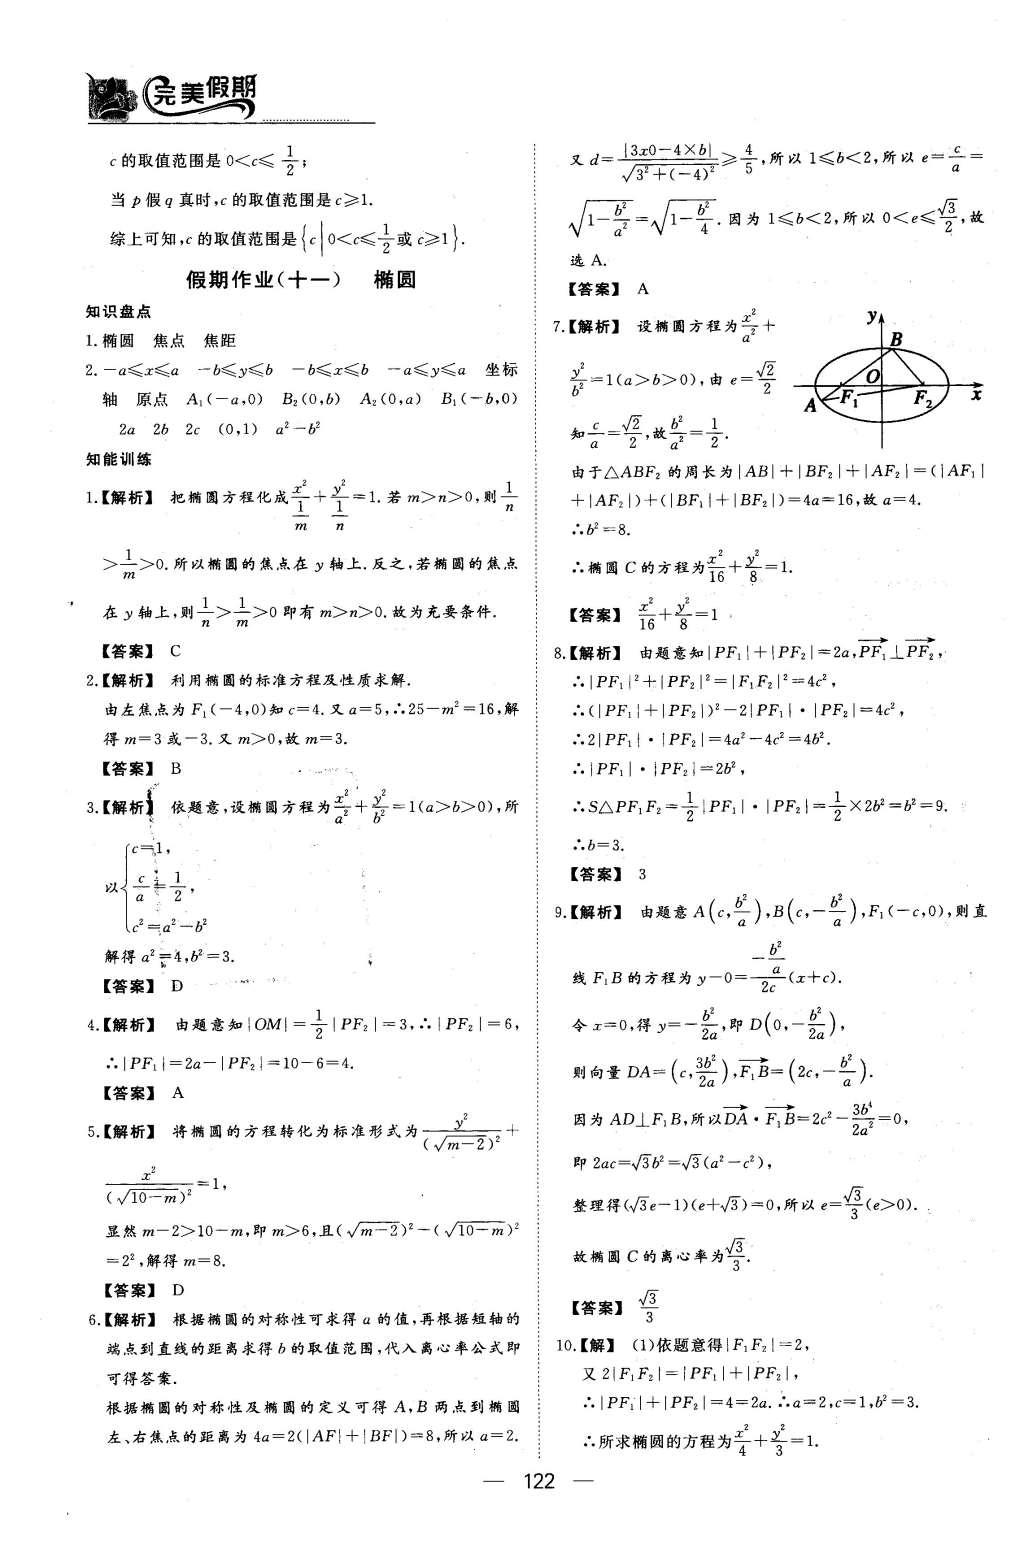 完美假期
c的取值范围是0<c≤1/2;
当p假q真时,c的取值范围是c≥1.
综上可知,c的取值范围是{c|0<c≤1/2或c≥1}.
假期作业(十一) 椭圆
知识盘点
1.椭圆 焦点 焦距
2.-a≤x≤a -b≤y≤b -b≤x≤b -a≤y≤a 坐标
轴 原点 A₁(-a,0) B₂(0,b) A₂(0,a) B₁(-b,0)
2a 2b 2c (0,1) a²-b²
知能训练
1.【解析】 把椭圆方程化成x²/(1/m)+y²/(1/n)=1.若m>n>0,则1/n
>1/m>0.所以椭圆的焦点在y轴上.反之,若椭圆的焦点
在y轴上,则1/n>1/m>0即有m>n>0.故为充要条件.
【答案】 C
2.【解析】 利用椭圆的标准方程及性质求解.
由左焦点为F₁(-4,0)知c=4.又a=5,∴25-m²=16,解
得m=3或-3.又m>0,故m=3.
【答案】 B
3.【解析】 依题意,设椭圆方程为x²/a²+y²/b²=1(a>b>0),所
以{c=1,
c/a=1/2,
c²=a²-b²
解得a²=4,b²=3.
【答案】 D
4.【解析】 由题意知|OM|=1/2|PF₂|=3,∴|PF₂|=6,
∴|PF₁|=2a-|PF₂|=10-6=4.
【答案】 A
5.【解析】 将椭圆的方程转化为标准形式为y²/(√(m-2))²+
x²/(√(10-m))²=1,
显然m-2>10-m,即m>6,且(√(m-2))²-(√(10-m))²
=2²,解得m=8.
【答案】 D
6.【解析】 根据椭圆的对称性可求得a的值,再根据短轴的
端点到直线的距离求得b的取值范围,代入离心率公式即
可得答案.
根据椭圆的对称性及椭圆的定义可得A,B两点到椭圆
左、右焦点的距离为4a=2(|AF|+|BF|)=8,所以a=2.
又d=|3x0-4×b|/√(3²+(-4)²)≥4/5,所以1≤b<2,所以e=c/a=
√(1-b²/a²)=√(1-b²/4).因为1≤b<2,所以0<e≤√3/2,故
选A.
【答案】 A
7.【解析】 设椭圆方程为x²/a²+
y²/b²=1(a>b>0),由e=√2/2
知c/a=√2/2,故b²/a²=1/2.
y
B
O
A F₁ F₂ x
由于△ABF₂的周长为|AB|+|BF₂|+|AF₂|=(|AF₁|
+|AF₂|)+(|BF₁|+|BF₂|)=4a=16,故a=4.
∴b²=8.
∴椭圆C的方程为x²/16+y²/8=1.
【答案】 x²/16+y²/8=1
8.【解析】 由题意知|PF₁|+|PF₂|=2a,PF₁⊥PF₂,
∴|PF₁|²+|PF₂|²=|F₁F₂|²=4c²,
∴(|PF₁|+|PF₂|)²-2|PF₁|·|PF₂|=4c²,
∴2|PF₁|·|PF₂|=4a²-4c²=4b².
∴|PF₁|·|PF₂|=2b²,
∴S△PF₁F₂=1/2|PF₁|·|PF₂|=1/2×2b²=b²=9.
∴b=3.
【答案】 3
9.【解析】 由题意A(c,b²/a),B(c,-b²/a),F₁(-c,0),则直
线F₁B的方程为y-0=(-b²/a)/2c(x+c).
令x=0,得y=-b²/2a,即D(0,-b²/2a),
则向量DA=(c,3b²/2a),F₁B=(2c,-b²/a).
因为AD⊥F₁B,所以DA·F₁B=2c²-3b⁴/2a²=0,
即2ac=√3b²=√3(a²-c²),
整理得(√3e-1)(e+√3)=0,所以e=√3/3(e>0).
故椭圆C的离心率为√3/3.
【答案】 √3/3
10.【解】 (1)依题意得|F₁F₂|=2,
又2|F₁F₂|=|PF₁|+|PF₂|,
∴|PF₁|+|PF₂|=4=2a.∴a=2,c=1,b²=3.
∴所求椭圆的方程为x²/4+y²/3=1.
— 122 —